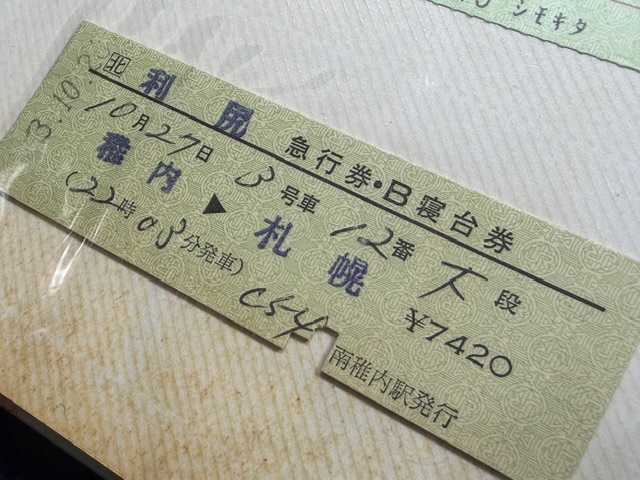 シモキタ
北 利尻 急行券・B寝台券
10月27日 3号車 12番 下段
稚内 ▶ 札幌
(22時03分発車) ¥7420
南稚内駅発行